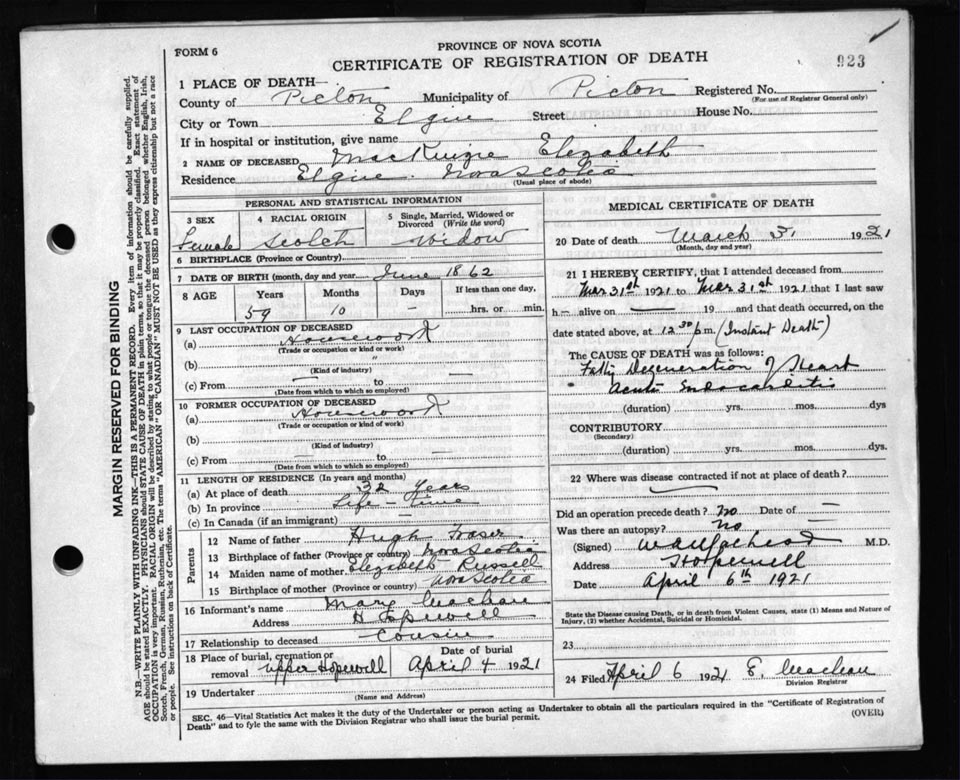 PROVINCE OF NOVA SCOTIA
FORM 6
CERTIFICATE OF REGISTRATION OF DEATH
923
1 PLACE OF DEATH—
County of Pictou Municipality of Pictou Registered No.
(For use of Registrar General only)
City or Town Elgin Street House No.
If in hospital or institution, give name
2 NAME OF DECEASED MacKenzie Elezabeth
Residence Elgin. Nova Scotia
(Usual place of abode)
PERSONAL AND STATISTICAL INFORMATION
3 SEX 4 RACIAL ORIGIN 5 Single, Married, Widowed or Divorced (Write the word)
Female Scotch Widow
6 BIRTHPLACE (Province or Country)
7 DATE OF BIRTH (month, day and year) June 1862
8 AGE Years Months Days If less than one day,
59 10 — hrs. or min.
9 LAST OCCUPATION OF DECEASED
(a) Housework
(Trade or occupation or kind or work)
(b) "
(Kind of industry)
(c) From — to —
(Date from which to which employed)
10 FORMER OCCUPATION OF DECEASED
(a) Housework
(Trade or occupation or kind of work)
(b)
(Kind of industry)
(c) From — to —
(Date from which so which employed)
11 LENGTH OF RESIDENCE (In years and months)
(a) At place of death 32 years
(b) In province Life time
(c) In Canada (if an immigrant) —
Parents
12 Name of father Hugh Fraser
13 Birthplace of father (Province or country) Nova Scotia
14 Maiden name of mother Elizabeth Russell
15 Birthplace of mother (Province or country) Nova Scotia
16 Informant's name Mary
Address Hopewell
17 Relationship to deceased Cousin
18 Place of burial, cremation or removal Upper Hopewell Date of burial April 4 1921
19 Undertaker
(Name and Address)
MEDICAL CERTIFICATE OF DEATH
20 Date of death March 31 1921
(Month, day and year)
21 I HEREBY CERTIFY, that I attended deceased from
Mar 31st 1921 to Mar 31st 1921 that I last saw
h— alive on — 19 and that death occurred, on the
date stated above, at 12 30 p.m. (Instant Death)
The CAUSE OF DEATH was as follows:
Fatty Degeneration of Heart
Acute Endocarditis
(duration) yrs. mos. dys
CONTRIBUTORY
(Secondary)
(duration) yrs. mos. dys.
22 Where was disease contracted if not at place of death?
Did an operation precede death? No Date of —
Was there an autopsy? No —
(Signed) M.D.
Address Hopewell
Date April 6th 1921
State the Disease causing Death, or in death from Violent Causes, state (1) Means and Nature of
Injury, (2) whether Accidental, Suicidal or Homicidal.
23
24 Filed April 6 1921 E.
Division Registrar
SEC. 46—Vital Statistics Act makes it the duty of the Undertaker or person acting as Undertaker to obtain all the particulars required in the "Certificate of Registration of
Death" and to fyle the same with the Division Registrar who shall issue the burial permit.
(OVER)
MARGIN RESERVED FOR BINDING
N.B.—WRITE PLAINLY WITH UNFADING INK—THIS IS A PERMANENT RECORD. Every item of information should be carefully supplied.
AGE should be stated EXACTLY. PHYSICIANS should STATE CAUSE OF DEATH in plain terms, so that it may be properly classified. Exact statement of
OCCUPATION is very important. RACIAL ORIGIN will be described by stating to what people or tongue the deceased person belonged whether English, Irish,
Scotch, French, German, Russian, Ruthenian, etc. The terms "AMERICAN" OR "CANADIAN" MUST NOT BE USED as they express citizenship but not a race
or people. See instructions on back of Certificate.